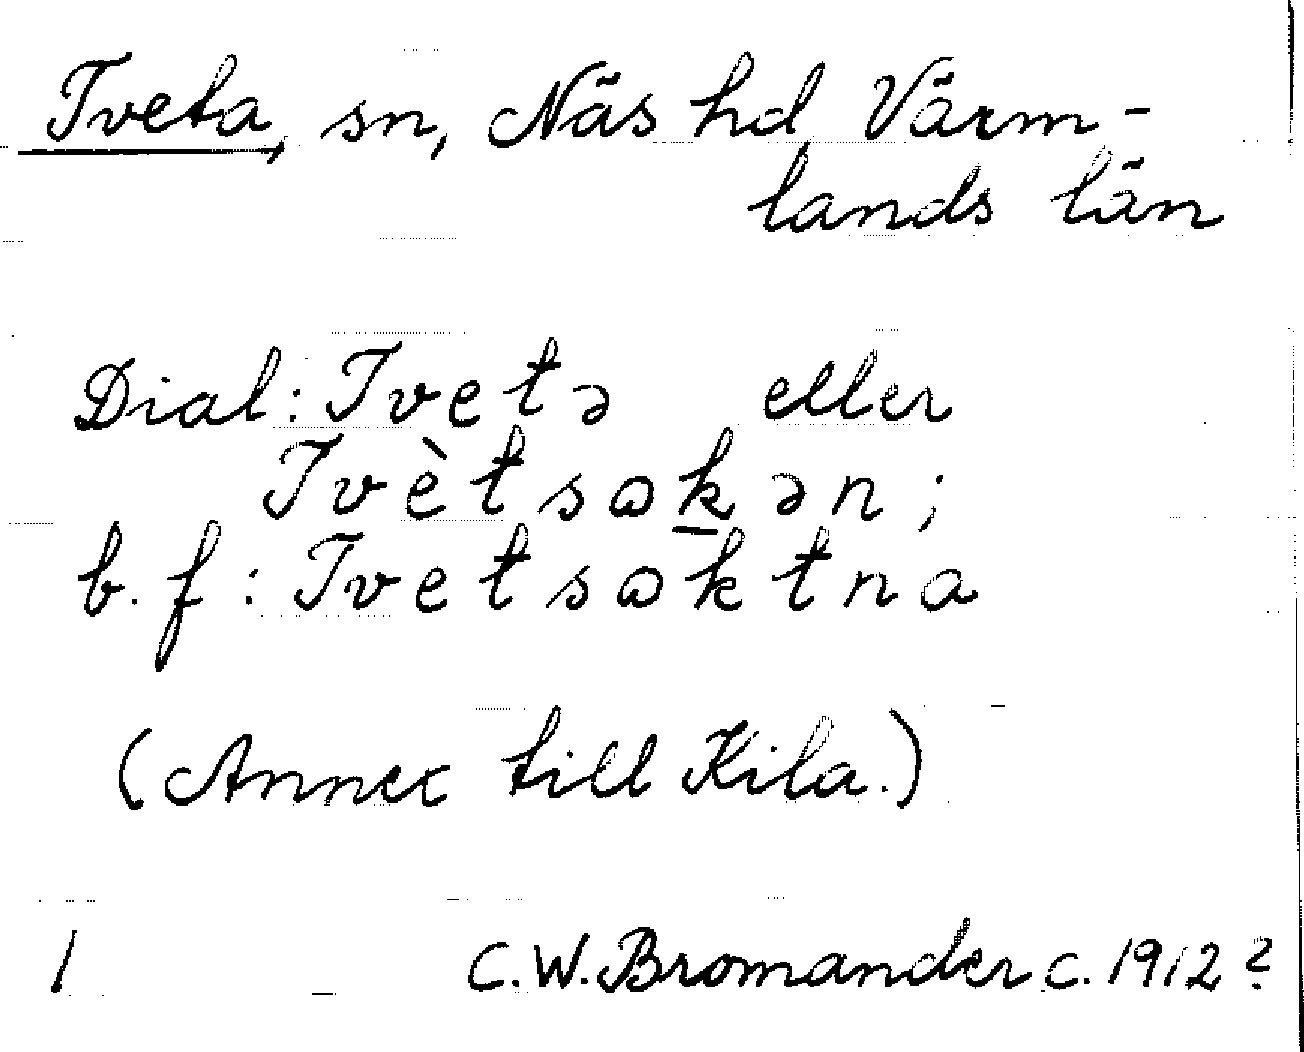 Tveta, sn, Näs hd Värm-
lands län
Dial: Tvetə eller
Tvètsωkən;
b. f: Tvetsωktna
(Annex till Kila.)
1 C.W. Bromander c. 1912?